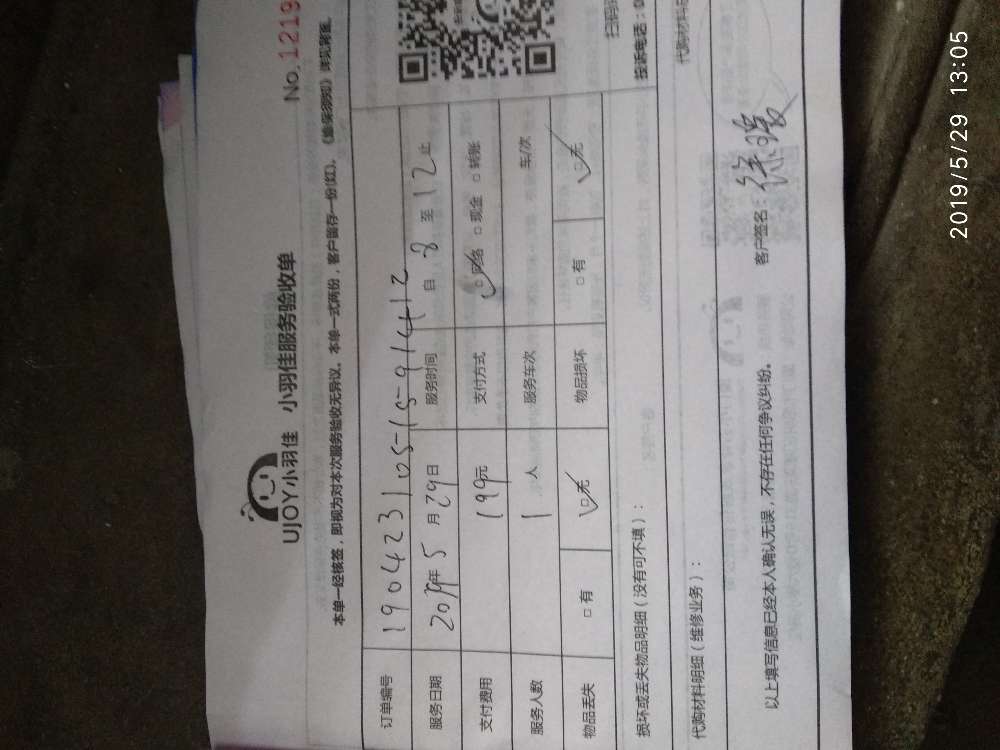 UJOY小羽佳 小羽佳服务验收单
No. 1219
本单一经核签，即视为对本次服务验收无异议。本单一式两份，客户留存一份(红)。
订单编号 190423105-15-91412
服务日期 2019年 5 月 29日 服务时间 自 8 至 12 止
支付费用 199元 支付方式 □网络 □现金 □转账
服务人数 1 人 服务车次 车/次
物品丢失 □有 □无 物品损坏 □有 □无
损坏或丢失物品明细（没有可不填）：
投诉电话：0
代购材料明细（维修业务）：
以上填写信息已经本人确认无误，不存在任何争议纠纷。 客户签名：
2019/5/29 13:05